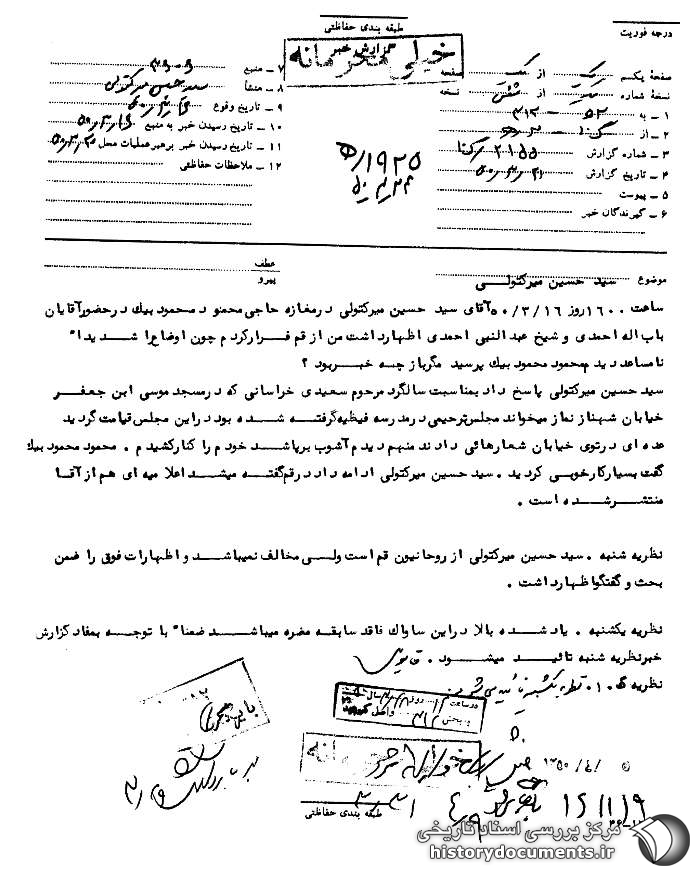 طبقه بندی حفاظتی
درجه فوریت
خیلی محرمانه
گزارش خبر
صفحه یکم از صفحه
نسخه شماره از شش نسخه
۱ ـ به ۳۱۲
۲ ـ از
۳ ـ شماره گزارش ۲۱۵۵
۴ ـ تاریخ گزارش
۵ ـ پیوست
۶ ـ گیرندگان خبر
۷ ـ منبع
۸ ـ منشأ سید حسین میرکتولی
۹ ـ تاریخ وقوع
۱۰ ـ تاریخ رسیدن خبر به منبع
۱۱ ـ تاریخ رسیدن خبر برهبرعملیات محل
۱۲ ـ ملاحظات حفاظتی
موضوع سید حسین میرکتولی
عطف
پیرو
ساعت ۱۶۰۰ روز ۵۰/۳/۱۶ آقای سید حسین میرکتولی درمغازه حاجی محمود محمود بیك درحضورآقایان
باب اله احمدی و شیخ عبدالنبی احمدی اظهارداشت من از قم فرارکردم چون اوضاع را شدیداً
نامساعد دیدم محمود محمود بیك پرسید مگرباز چه خبربود ؟
سید حسین میرکتولی پاسخ داد بمناسبت سالگرد مرحوم سعیدی خراسانی که درمسجد موسی ابن جعفر
خیابان شهناز نماز میخواند مجلس ترحیمی درمدرسه فیظیه گرفته شده بود دراین مجلس قیامت گردید
عده ای درتوی خیابان شعارهائی دادند منهم دیدم آشوب برپاشد خودم را کنارکشیدم . محمود محمود بیك
گفت بسیارکارخوبی کردید . سید حسین میرکتولی ادامه داد درقم گفته میشد اعلامیه ای هم از آقا
منتشرشده است .
نظریه شنبه . سید حسین میرکتولی از روحانیون قم است ولی مخالف نمیباشد و اظهارات فوق را ضمن
بحث و گفتگو اظهارداشت .
نظریه یکشنبه . یاد شده بالا دراین ساواك فاقد سابقه مضره میباشد ضمناً با توجه بمفاد گزارش
خبرنظریه شنبه تائید میشود .
نظریه
طبقه بندی حفاظتی
مرکز بررسی اسناد تاریخی
historydocuments.ir